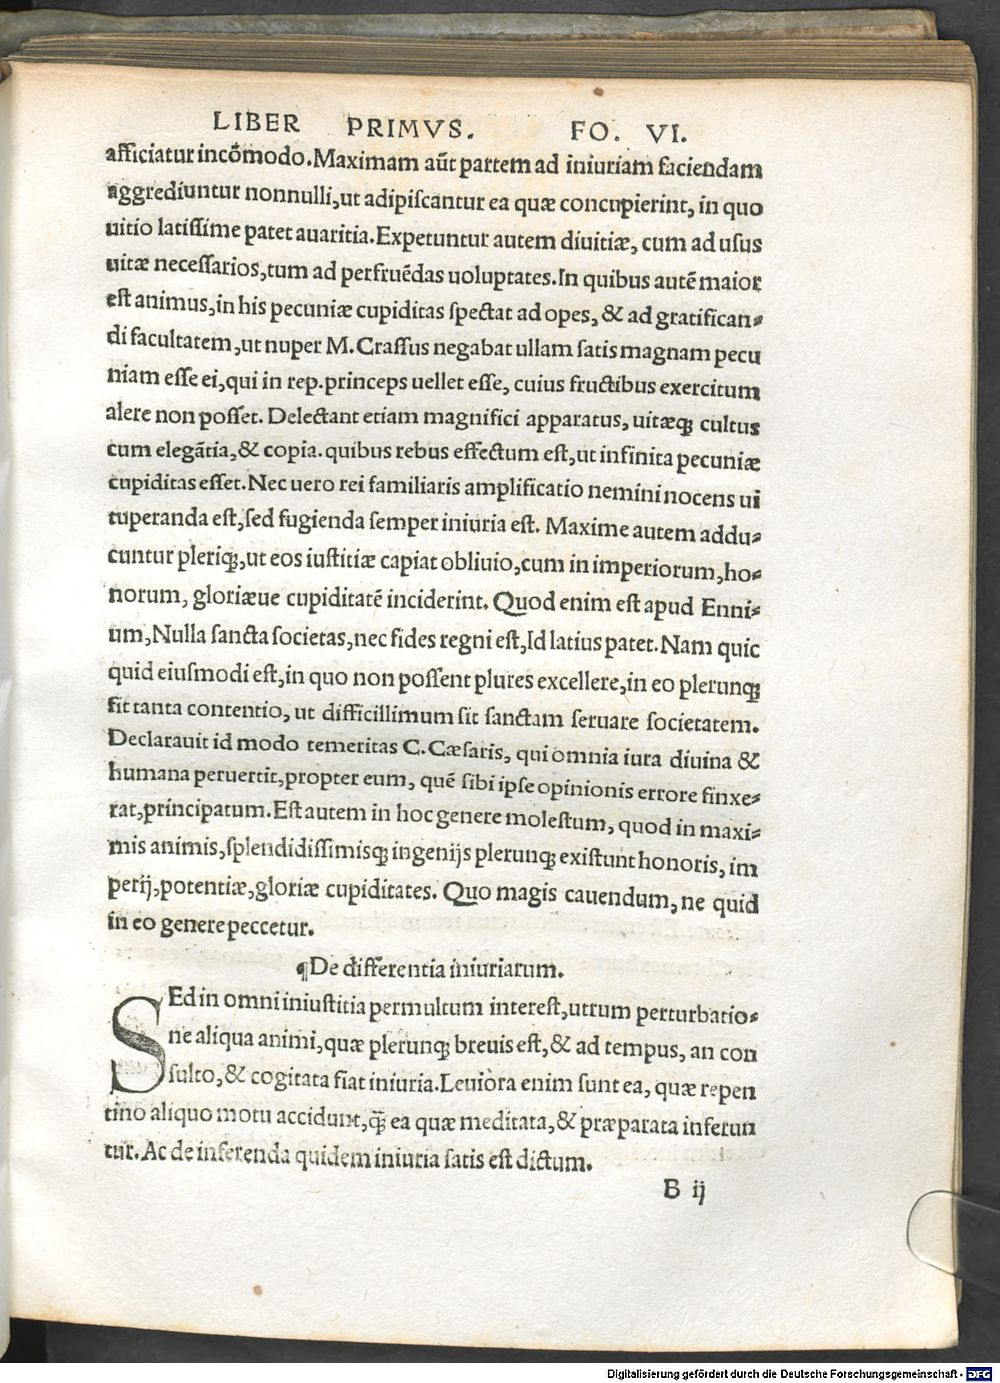 LIBER PRIMVS. FO. VI.
afficiatur incōmodo.Maximam aūt partem ad iniuriam faciendam
aggrediuntur nonnulli,ut adipiſcantur ea quæ concupierint, in quo
uitio latiſſime patet auaritia.Expetuntur autem diuitiæ, cum ad uſus
uitæ neceſſarios,tum ad perfruēdas uoluptates.In quibus autē maior
eſt animus,in his pecuniæ cupiditas ſpectat ad opes, & ad gratifican⸗
di facultatem,ut nuper M.Craſſus negabat ullam ſatis magnam pecu
niam eſſe ei,qui in rep.princeps uellet eſſe, cuius fructibus exercitum
alere non poſſet. Delectant etiam magnifici apparatus, uitæq́; cultus
cum elegātia,& copia.quibus rebus effectum eſt,ut infinita pecuniæ
cupiditas eſſet.Nec uero rei familiaris amplificatio nemini nocens ui
tuperanda eſt,ſed fugienda ſemper iniuria eſt. Maxime autem addu⸗
cuntur pleriq́;,ut eos iuſtitiæ capiat obliuio,cum in imperiorum,ho⸗
norum, gloriæue cupiditatē inciderint. Quod enim eſt apud Enni⸗
um,Nulla ſancta ſocietas,nec fides regni eſt,Id latius patet.Nam quic
quid eiuſmodi eſt,in quo non poſſent plures excellere,in eo plerunq́;
fit tanta contentio, ut difficillimum ſit ſanctam ſeruare ſocietatem.
Declarauit id modo temeritas C.Cæſaris, qui omnia iura diuina &
humana peruertit,propter eum, quē ſibi ipſe opinionis errore finxe⸗
rat,principatum.Eſt autem in hoc genere moleſtum, quod in maxi⸗
mis animis,ſplendidiſſimisq́; ingenijs plerunq́; exiſtunt honoris, im
perij,potentiæ,gloriæ cupiditates. Quo magis cauendum, ne quid
in eo genere peccetur.
¶De differentia iniuriarum.
SEd in omni iniuſtitia permultum intereſt,utrum perturbatio⸗
ne aliqua animi,quæ plerunq́; breuis eſt,& ad tempus, an con
ſulto,& cogitata fiat iniuria.Leuiora enim ſunt ea, quæ repen
tino aliquo motu accidunt,q̄̃ ea quæ meditata,& præparata inferun
tur.Ac de inferenda quidem iniuria ſatis eſt dictum.
B ij
Digitalisierung gefördert durch die Deutsche Forschungsgemeinschaft - DFG